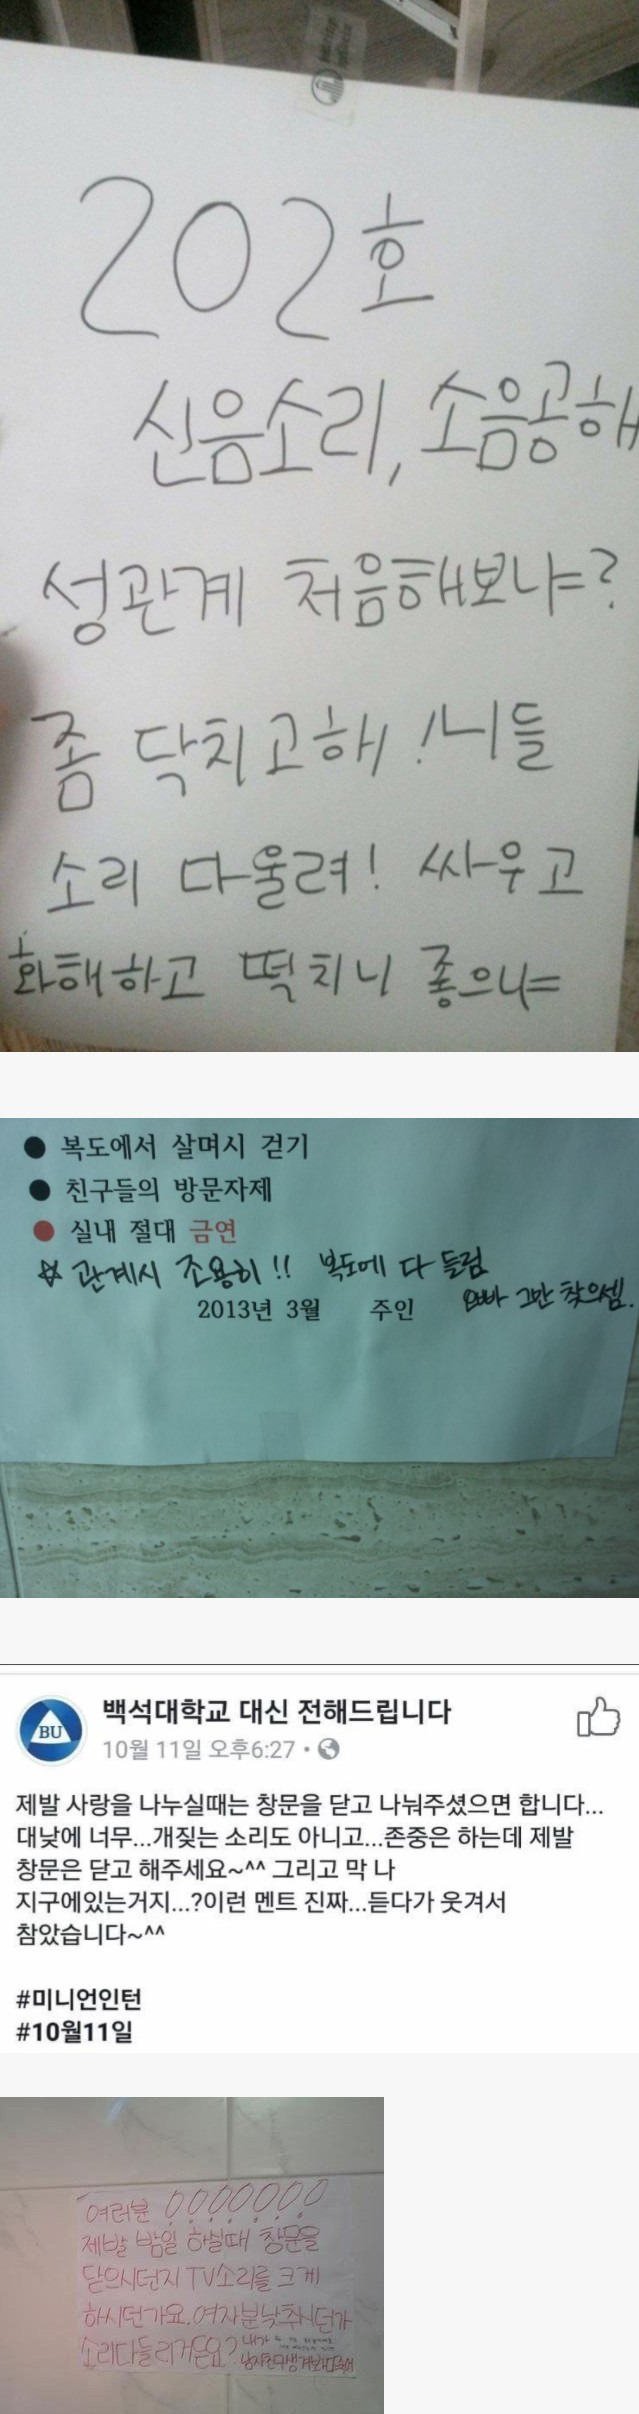 202호
신음소리, 소음공해
성관계 처음해보냐=?
좀 닥치고해! 니들
소리 다울려! 싸우고
화해하고 떡치니 좋으냐=
● 복도에서 살며시 걷기
● 친구들의 방문자제
● 실내 절대 금연
☆ 관계시 조용히!! 복도에 다 들림
오빠 그만 찾으셈.
2013년 3월 주인
BU
백석대학교 대신 전해드립니다
10월 11일 오후6:27 •
제발 사랑을 나누실때는 창문을 닫고 나눠주셨으면 합니다...
대낮에 너무...개짖는 소리도 아니고...존중은 하는데 제발
창문은 닫고 해주세요~^^ 그리고 막 나
지구에있는거지...?이런 멘트 진짜...듣다가 웃겨서
참았습니다~^^
#미니언인턴
#10월11일
여러분 !!!!!!!
제발 밤일 하실때 창문을
닫으시던지 TV소리를 크게
하시던가요. 여자분낮추시던가
소리다들리거든요? 내가